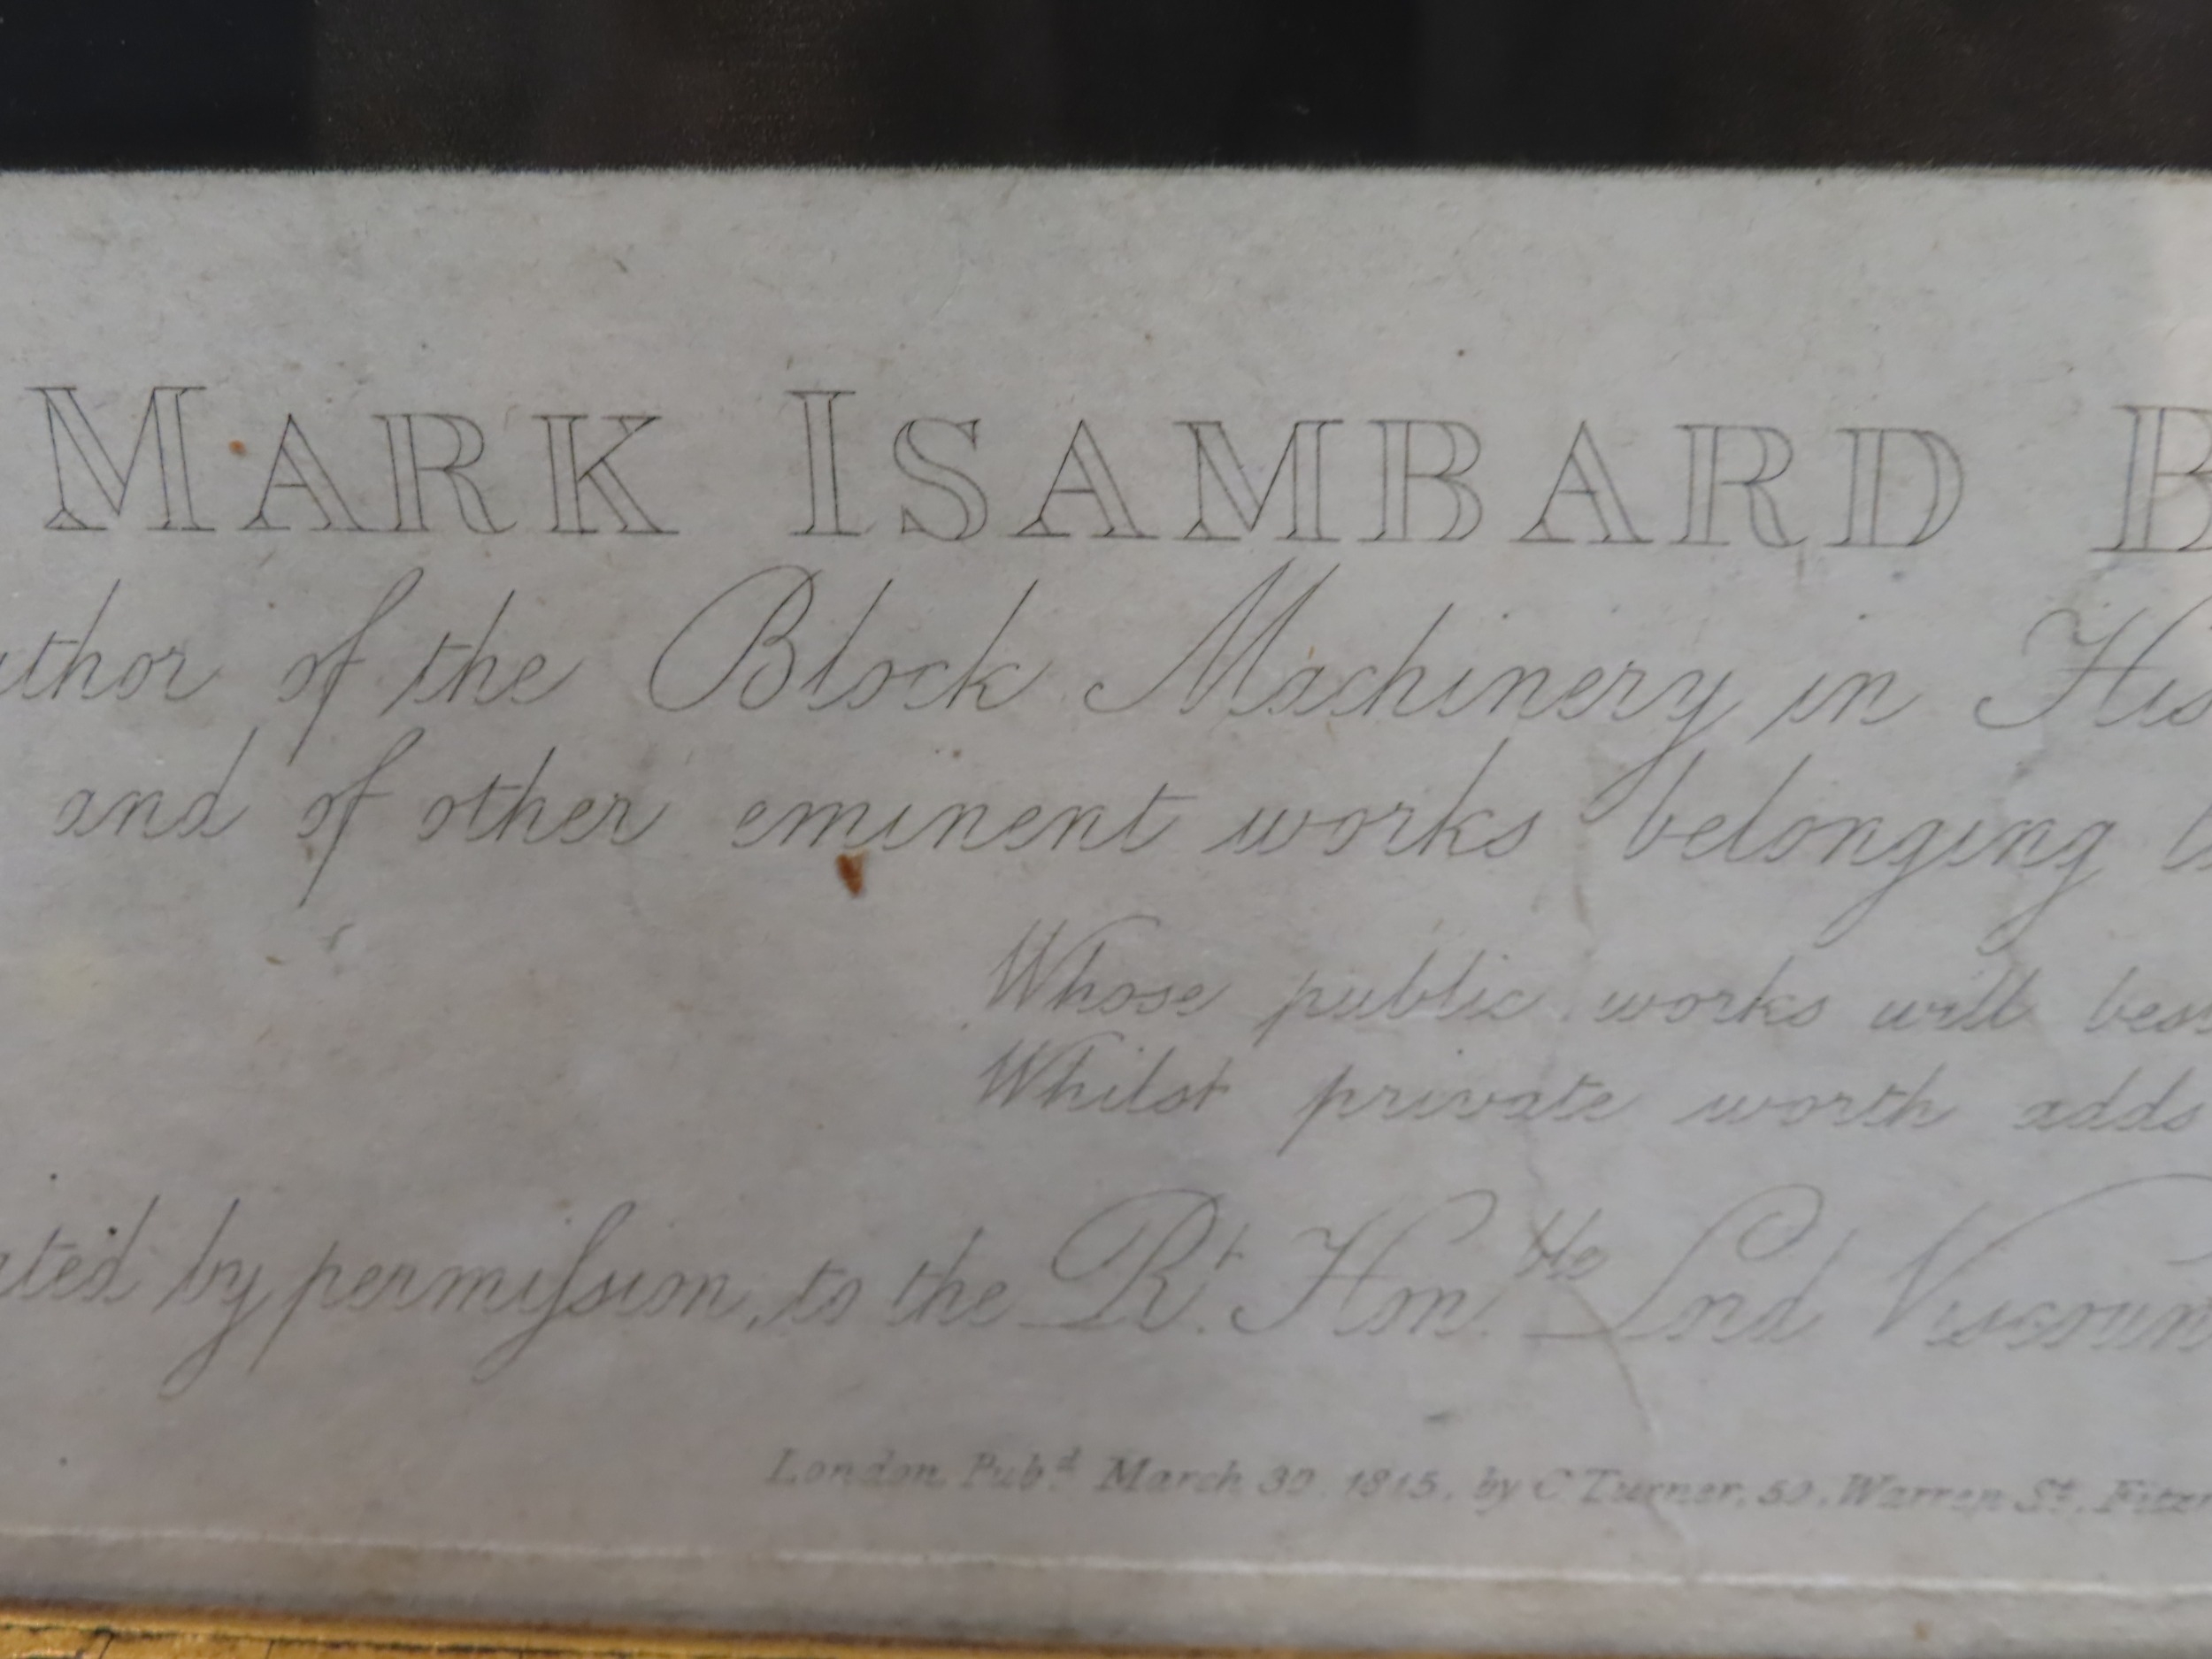 MARK ISAMBARD B
uthor of the Block Machinery in His
and of other eminent works belonging t
Whose public works will bes
Whilst private worth adds
ated by permiſsion, to the Rt. Honble Lord Viscoun
London, Pubd. March 30. 1815, by C Turner, 50, Warren St. Fitz